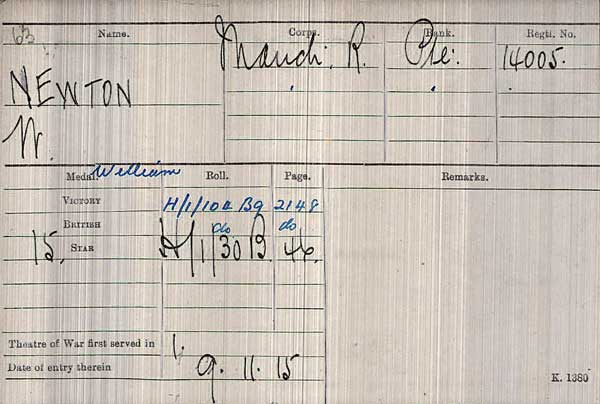 63 Name. Corps. Rank. Regtl. No.
NEWTON Manch: R. Pte: 14005.
W.
William
Medal. Roll. Page. Remarks.
VICTORY H/1/10A B9 2148
BRITISH do do
15, STAR H/1/30 B 46.
Theatre of War first served in 1.
Date of entry therein 9. 11. 15
K. 1380